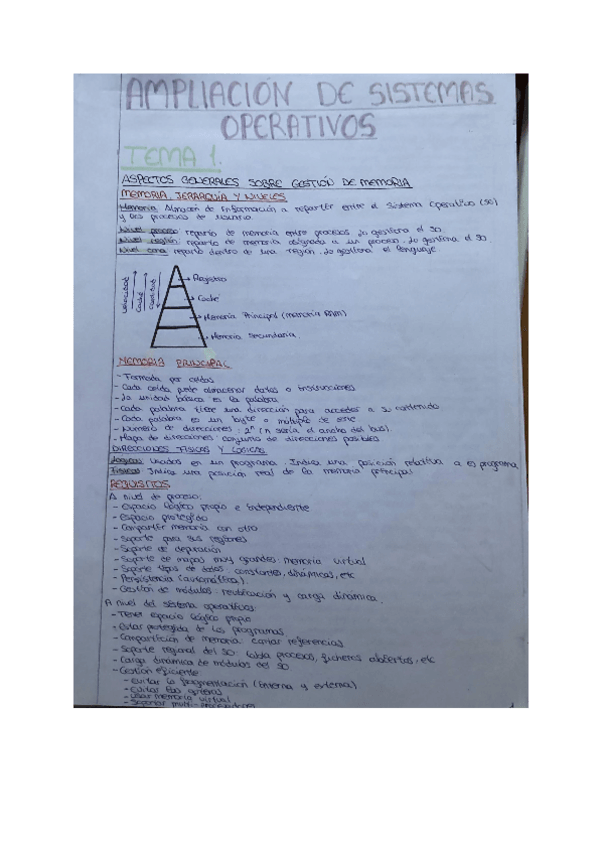 AMPLIACIÓN DE SISTEMAS
OPERATIVOS
TEMA 1.
ASPECTOS GENERALES SOBRE GESTIÓN DE MEMORIA
MEMORIA, JERARQUÍA Y NIVELES
Memoria: Almacén de información a repartir entre el Sistema Operativo (SO)
y los procesos de usuario
Nivel proceso: reparto de memoria entre procesos. Lo gestiona el SO.
Nivel región: reparto de memoria asignada a un proceso. Lo gestiona el SO.
Nivel zona: reparto dentro de una región. Lo gestiona el lenguaje.
velocidad
Coste
Cantidad
Registros
Caché
Memoria Principal (memoria RAM)
Memoria Secundaria.
MEMORIA PRINCIPAL
- Formada por celdas
- Cada celda puede almacenar datos o instrucciones
- La unidad básica es la palabra
- Cada palabra tiene una dirección para acceder a su contenido
- Cada palabra es un byte o múltiplo de este
- Número de direcciones: 2ⁿ (n sería el ancho del bus).
- Mapa de direcciones: conjunto de direcciones posibles.
DIRECCIONES FÍSICAS Y LÓGICAS
Lógicas: Usadas en un programa. Indica una posición relativa a programa
Físicas: Indica una posición real de la memoria principal
REQUISITOS
A nivel de proceso:
- Espacio lógico propio e independiente
- Espacio protegido
- Compartir memoria con otro
- Soporte para sus regiones
- Soporte de depuración
- Soporte de mapas muy grandes: memoria virtual
- Soporte tipos de datos: constantes, dinámicas, etc
- Persistencia (automática).
- Gestión de módulos: reutilización y carga dinámica.
A nivel del sistema operativos:
- Tener espacio lógico propio
- Estar protegida de los programas
- Compartición de memoria: contar referencias
- Soporte regional del SO: tabla procesos, ficheros abiertos, etc
- Carga dinámica de módulos del SO
- Gestión eficiente:
- Evitar la fragmentación (interna y externa)
- Evitar
- Usar memoria virtual
- Soportar multi-procesadores